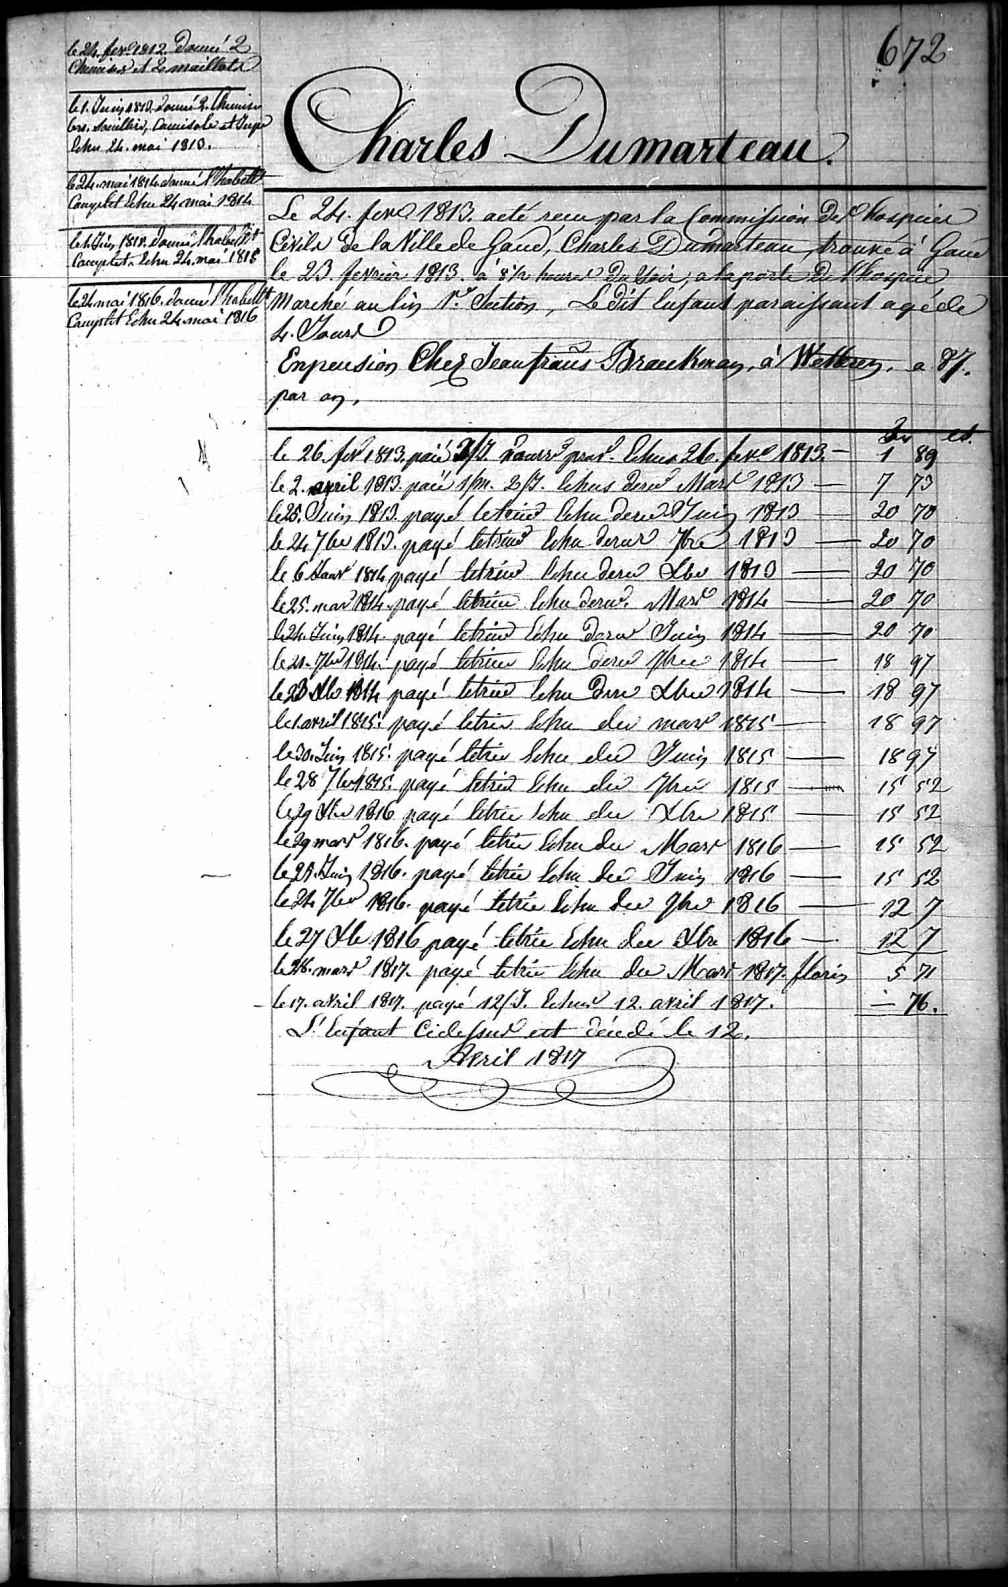 672
le 24. fevr 1812. Donné 2
Chemises et 2 maillots
le 1. Juin 1813. donné 2. Chemise
Camisole et Jupe
Echu 24. mai 1813.
le 24. mai 1814 donné l'habellt
Complet Echu 24 mai 1814
le 1. Juin 1815. donné l'habellt
Complet. Echu 24. mai 1815
le 24 mai 1816. donné l'habellt
Complet Echu 24 mai 1816
Charles Dumarteau.
Le 24. fevr 1813. acté recu par la Commission des hospices
Civils de la Ville de Gand, Charles Dumarteau, trouvé à Gand
le 23. fevrier 1813. à 8½ heures du Soir, a la porte de l'hospice
Marché au lin 1re Section, Le dit Enfant paraissant agé de
4. Jours
En pension Chez Jean frans Braeckman, à Wetteren. a 87.
par an.
ct.
le 26. fevr 1813. paié 2/J. nourre prov. Echus 26. fevr 1813. — 1 89
le 2. april 1813. paié 1/m. 2/J. Echus dernr Mars 1813 — 7 73
le 25. Juin 1813. payé letrim Echu dernr Juin 1813 — 20 70
le 24 7bre 1813. payé letrim Echu dernr 7bre 1813 — 20 70
le 6 Janr 1814 payé letrim Echu dern Xbre 1813 — 20 70
le 25. mars 1814. payé letrim Echu dernr. Mars 1814 — 20 70
le 24. Juin 1814. payé letrim Echu dernr Juin 1814 — 20 70
le 21. 7bre 1814. payé letrim Echu dern 7bre 1814 — 18 97
le 23 Xbr 1814 payé letrim Echu dern Xbre 1814 — 18 97
le 1. avril 1815. payé letrim Echu der mars 1815 — 18 97
le 30. Juin 1815. payé letrim Echu der Juin 1815 — 18 97
le 28 7bre 1815. payé letrim Echu der 7bre 1815 — 15 52
le 29 Xbre 1816 payé letrim Echu der Xbre 1815 — 15 52
le 29 mars 1816. payé letrim Echu der Mars 1816 — 15 52
le 28. Juin 1816. payé letrim Echu der Juin 1816 — 15 52
le 24 7bre 1816. payé letrim Echu der 7bre 1816 — 12 7
le 27 Xbr 1816 payé letrim Echu der Xbre 1816 — 12 7
le 28. mars 1817. payé letrim Echu der Mars 1817. florins 5 71
le 17. avril 1817. payé 12/J. Echus 12. avril 1817. — 76.
L'Enfant Cidessus est décédé le 12.
Avril 1817